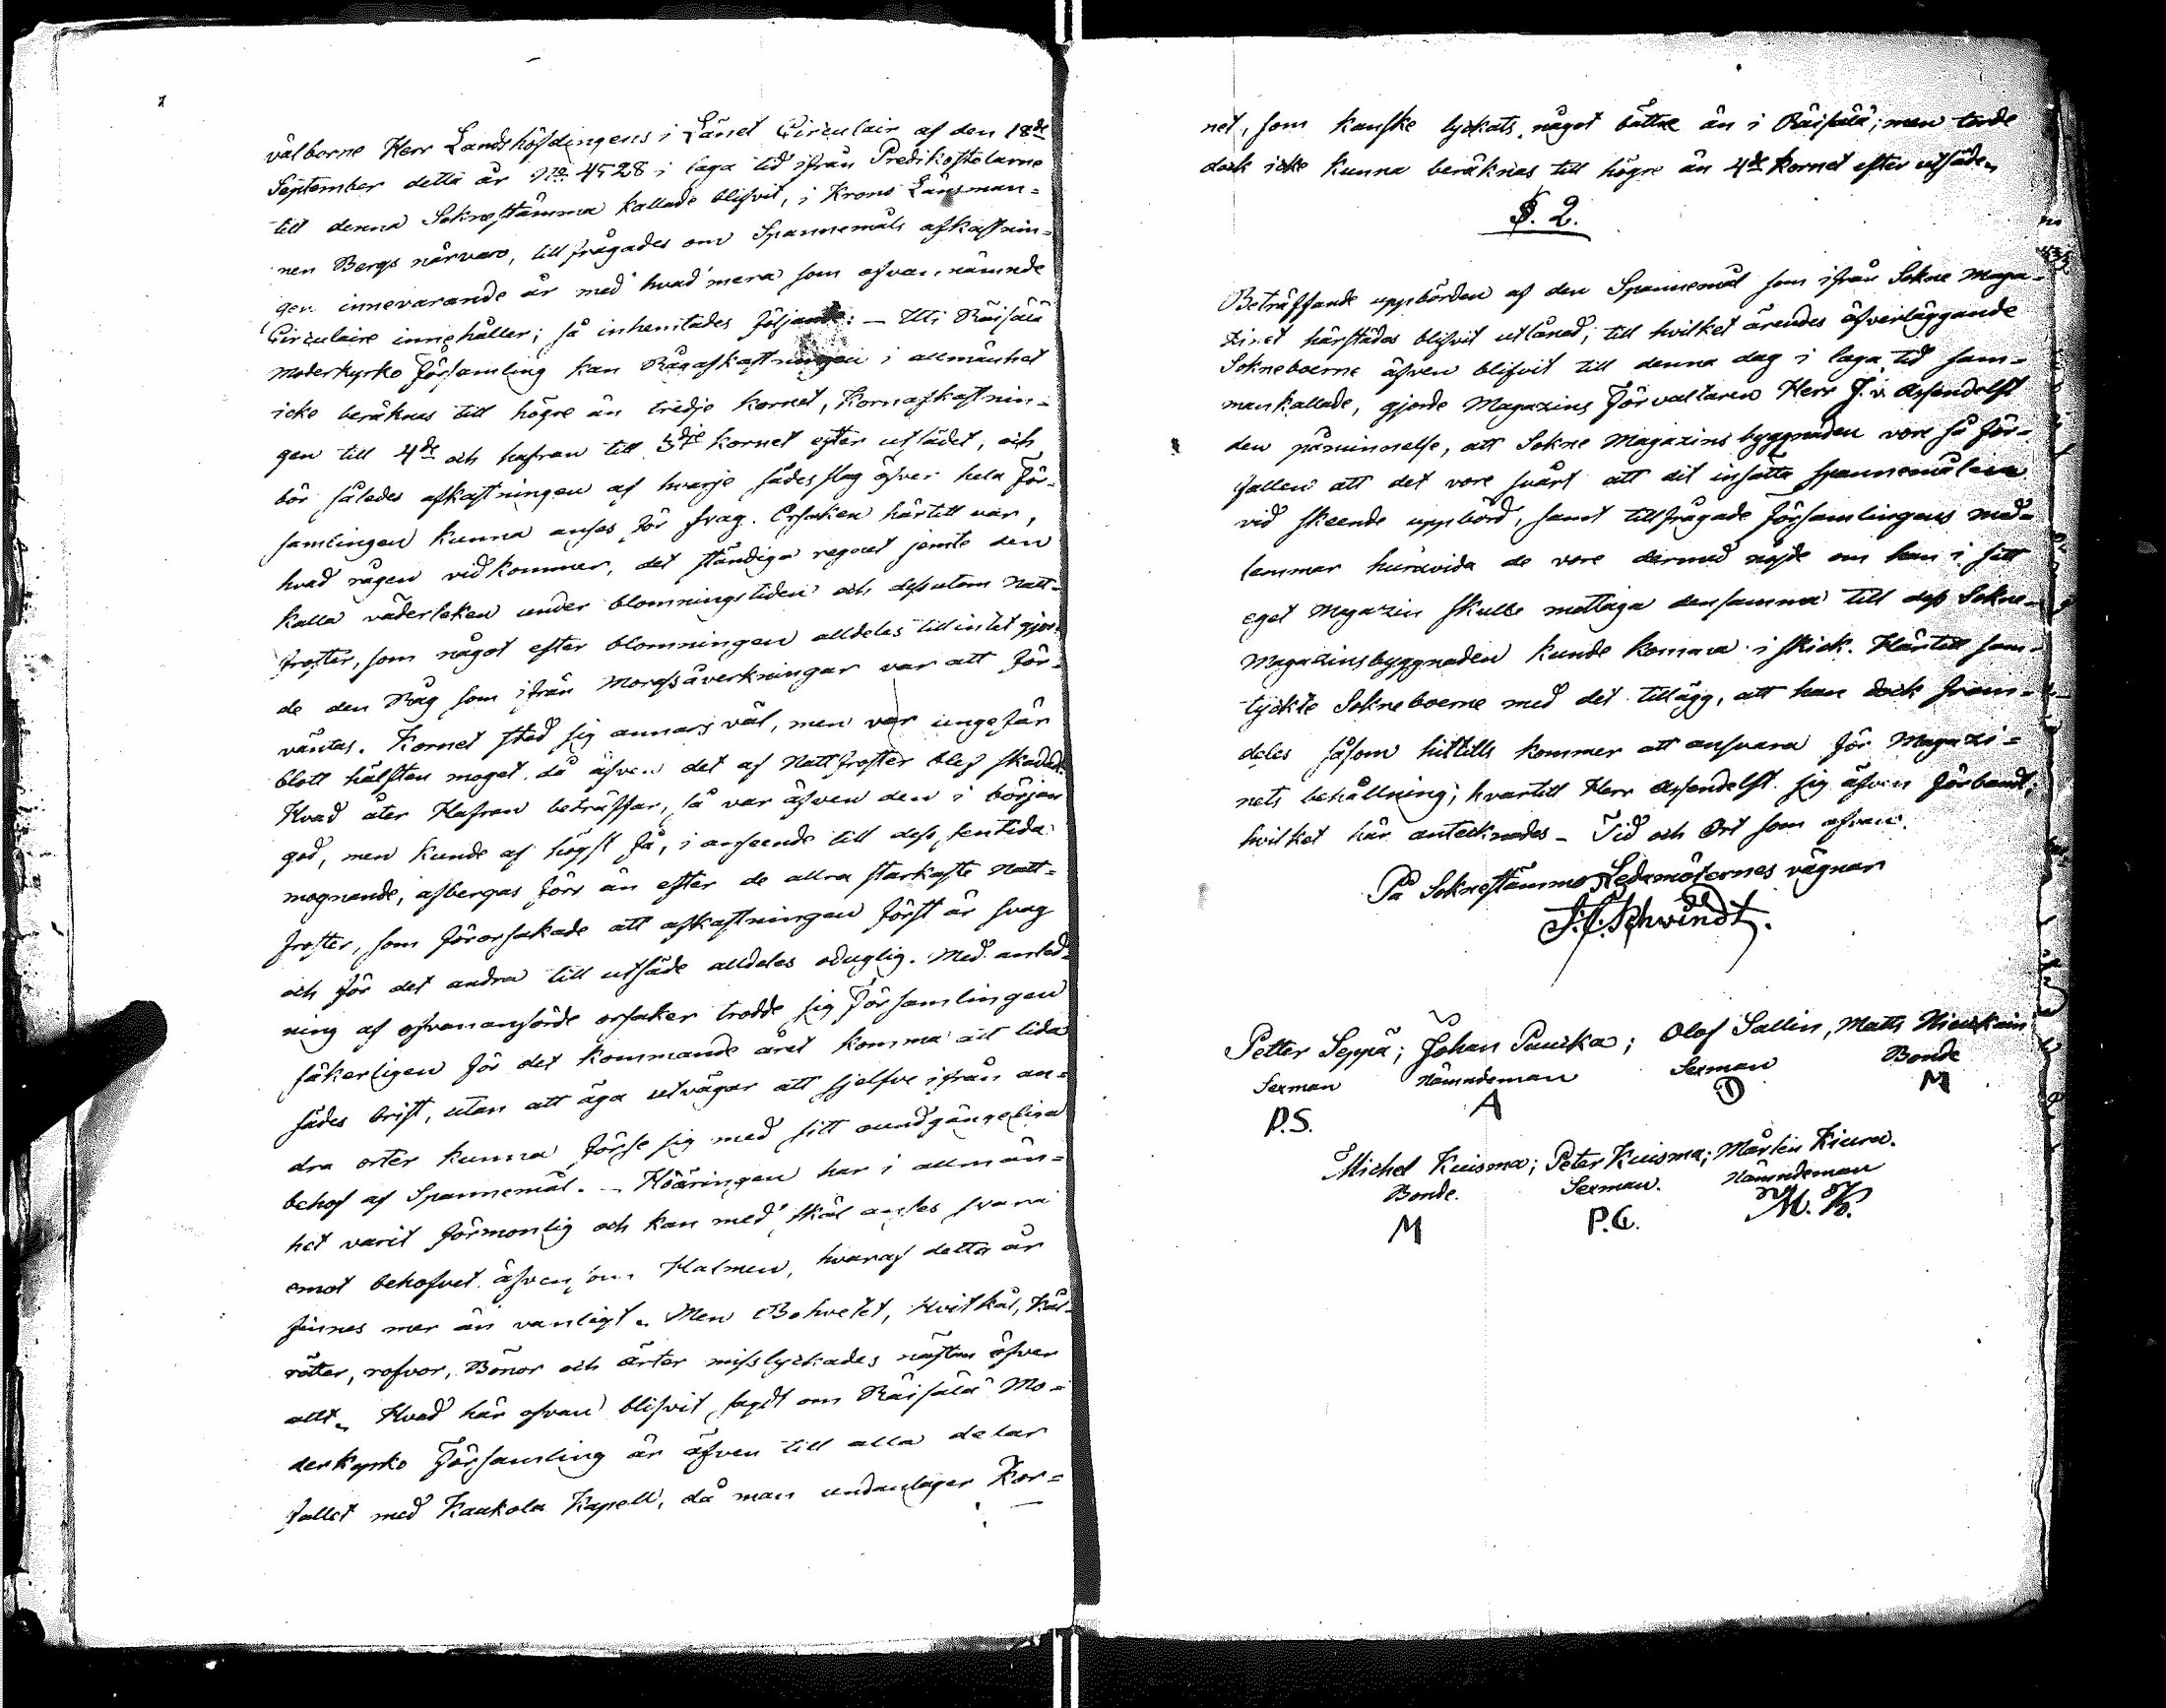 välborne Herr Landshöfdingens i Länet Circulair af den 18de
September detta år No 4528 i laga tid ifrån Predikostolarne
till denna Sokne stämma kallade blifvit, i Krono Länsman-
nen Bergs närvaro, till frågades om Spannemåls afkastnin-
gen innevarande år med hvad mera som ofvan nämnde
Circulaire innehåller; så inhemtades följande: — Uti Räisälä
Moderkyrko Församling kan Rågafkastningen i allmänhet
icke beräknas till högre än tredje kornet, Kornafkastnin-
gen till 4de och hafran till 3dje kornet efter utsädet, och
bör således afkastningen af hvarje sädesslag öfver hela För-
samlingen kunna anses för svag. Orsaken härtill var,
hvad rågen vidkommer, det ständiga regnet jemte den
kalla väderleken under blomningstiden och dessutom Natt-
froster, som något efter blomningen alldeles tillintet gjor-
de den Råg som ifrån Morassåverkningar var att för-
väntas. Kornet stod sig annars väl, men var ungefär
blott hälften moget, då äfven det af Nattfroster blef skadadt.
Hvad åter Hafran beträffar, så var äfven den i början
god, men kunde af högst få, i anseende till dess sentida
mognande, afbergas förr än efter de allra starkaste Natt-
froster, som förorsakade att afkastningen först är svag
och för det andra till utsäde alldeles oduglig. Med anled-
ning af ofvananförde orsaker trodde sig Församlingen
säkerligen för det kommande året komma att lida
sädes brist, utan att äga utvägar att sjelfve ifrån an-
dra orter kunna förse sig med sitt oundgängeliga
behof af Spannemål. — Höäringen har i allmän-
het varit förmonlig och kan med skäl anses svara
emot behofvet äfven som Halmen, hvaraf detta år
finnes mer än vanligt. Men Bohvetet, Hvitkål, Kål-
rötter, rofvor, Bönor och ärter misslyckades nästan öfver
allt. Hvad här ofvan blifvit sagdt om Räisälä Mo-
derkyrko Församling är äfven till alla delar
fallet med Kaukola Kapell, då man undantager Kor-
net, som kanske lyckats något bättre än i Räisälä; men torde
dock icke kunna beräknas till högre än 4de kornet efter utsäde.
§. 2.
Beträffande uppbörden af den Spannemål som ifrån Sokne Maga-
zinet härstädes blifvit utlånad, till hvilket ärendes öfverläggande
Sokneboerne äfven blifvit till denna dag i laga tid sam-
mankallade, gjorde Magazins Förvaltaren Herr J. v. Assendelft
den påminnelse, att Sokne Magazins byggnaden vore så för-
fallen att det vore svårt att dit insätta Spannemålen
vid skeende uppbörd, samt tillfrågade Församlingens med-
lemmar huruvida de vore dermed nöjde om han i sitt
eget Magazin skulle mottaga densamma till dess Sokne-
Magazinsbyggnaden kunde komma i skick. Härtill sam-
tyckte Sokneboerne med det tillägg, att han dock fram-
deles såsom hittills kommer att ansvara för Magazi-
nets behållning; hvartill Herr Assendelft sig äfven förbandt;
hvilket här antecknades — Tid och Ort som ofvan.
På Soknestämmo Ledamöternes vägnar
Schwindt.
Petter Seppä; Johan Puuska; Olof Sallin, Matts Hieukain
Sexman Nämndeman Sexman Bonde
P.S. A D M
Michel Kuisma; Peter Kuisma; Mårten Kiuru.
Bonde. Sexman. Nämndeman
M P.C. M. K.